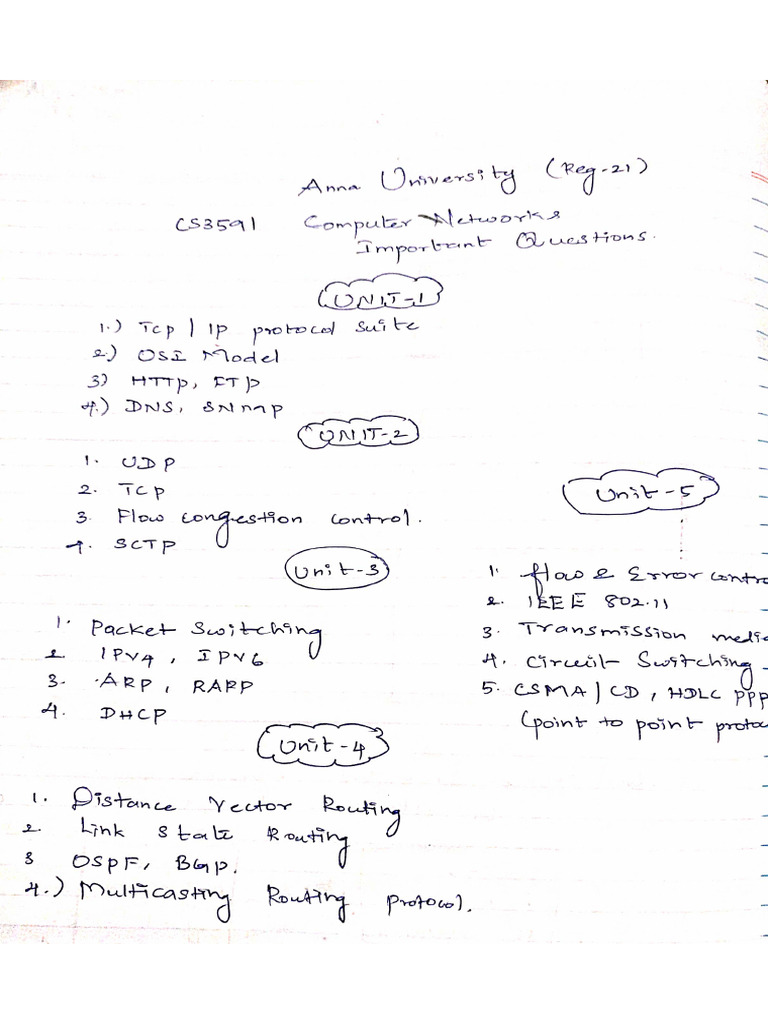 Anna University (Reg-21)
CS3591 Computer Networks
Important Questions.
UNIT-1
1.) Tcp / Ip protocol suite
2.) OSI Model
3) HTTp, FTp
4.) DNS, SNmp
UNIT-2
1. UDP
2. TCP
3. Flow congestion control.
4. SCTP
Unit-3
1. Packet Switching
2 IPV4, IPV6
3. ARP, RARP
4. DHCP
Unit-4
1. Distance Vector Routing
2. Link State Routing
3 OSPF, BGp.
4.) Multicasting Routing Protocol.
Unit-5
1. flow & Error contro
2. IEEE 802.11
3. Transmission media
4. Circuit Switching
5. CSMA / CD, HDLC PPP
(point to point protoco